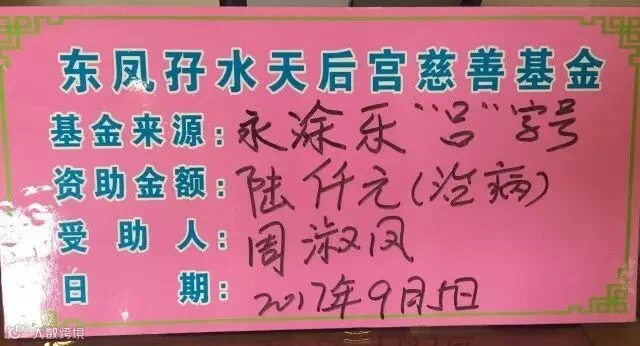 东凤孖水天后宫慈善基金
基金来源:永涂乐"吕"字号
资助金额:陆仟元(治病)
受助人:周淑凤
日期:2017年9月5日
大数跨境